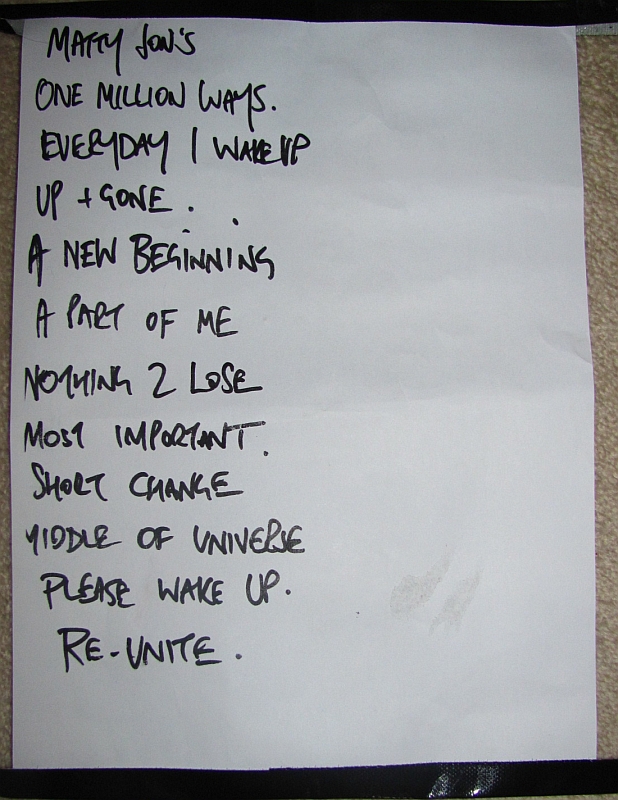 MATTY JON'S
ONE MILLION WAYS.
EVERYDAY I WAKE UP
UP + GONE.
A NEW BEGINNING
A PART OF ME
NOTHING 2 LOSE
MOST IMPORTANT.
SHORT CHANGE
MIDDLE OF UNIVERSE
PLEASE WAKE UP.
RE-UNITE.